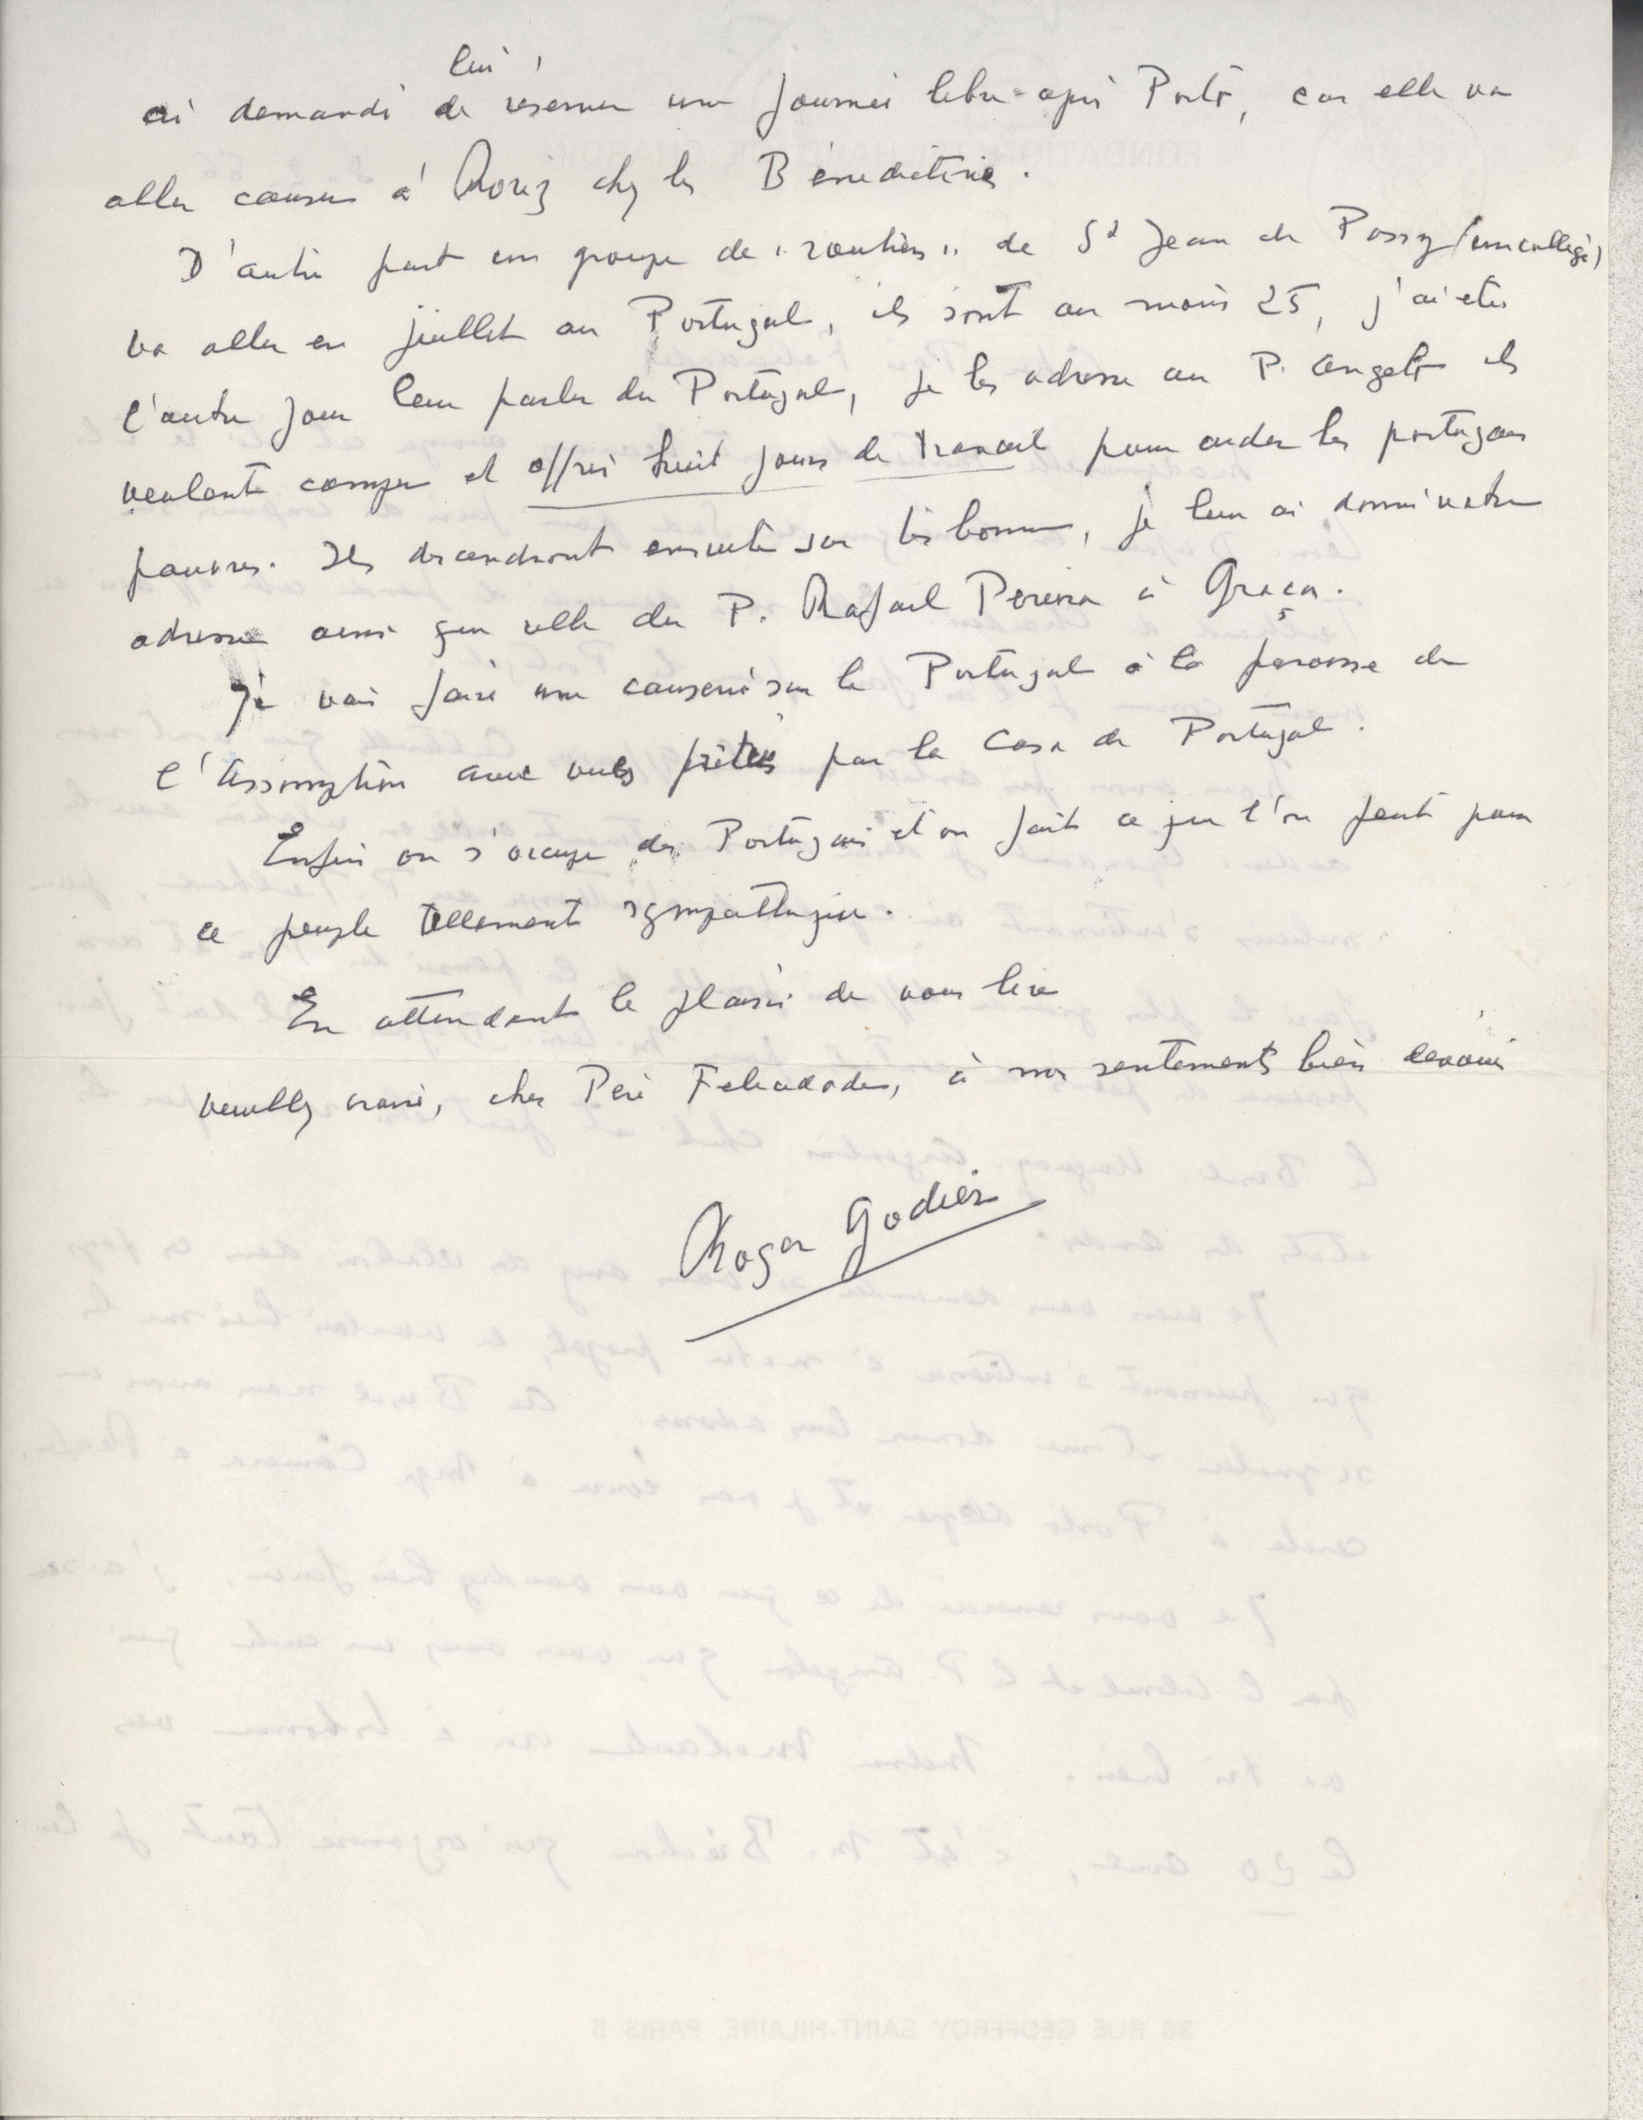 lui
ai demandé de réserver une journée libre après Porto, car elle va
aller causer à Roriz chez les Bénédictins.
D'autre part un groupe de "routiers" de St Jean de Passy (un collège)
va aller en juillet au Portugal, ils sont au moins 25, j'ai été
l'autre jour leur parler du Portugal, je les adresse au P. Angelo ils
veulent camper et offrir huit jours de travail pour aider les portugais
pauvres. Ils descendront ensuite sur Lisbonne, je leur ai donné votre
adresse ainsi que celle du P. Rafael Pereira à Graça.
Je vais faire une causerie sur le Portugal à la paroisse de
l'Assomption avec vues prêtées par la Casa de Portugal.
Enfin on s'occupe des Portugais et on fait ce que l'on peut pour
ce peuple tellement sympathique.
En attendant le plaisir de vous lire
veuillez croire, cher Père Felicidade, à mes sentiments bien dévoués
Roger Godier